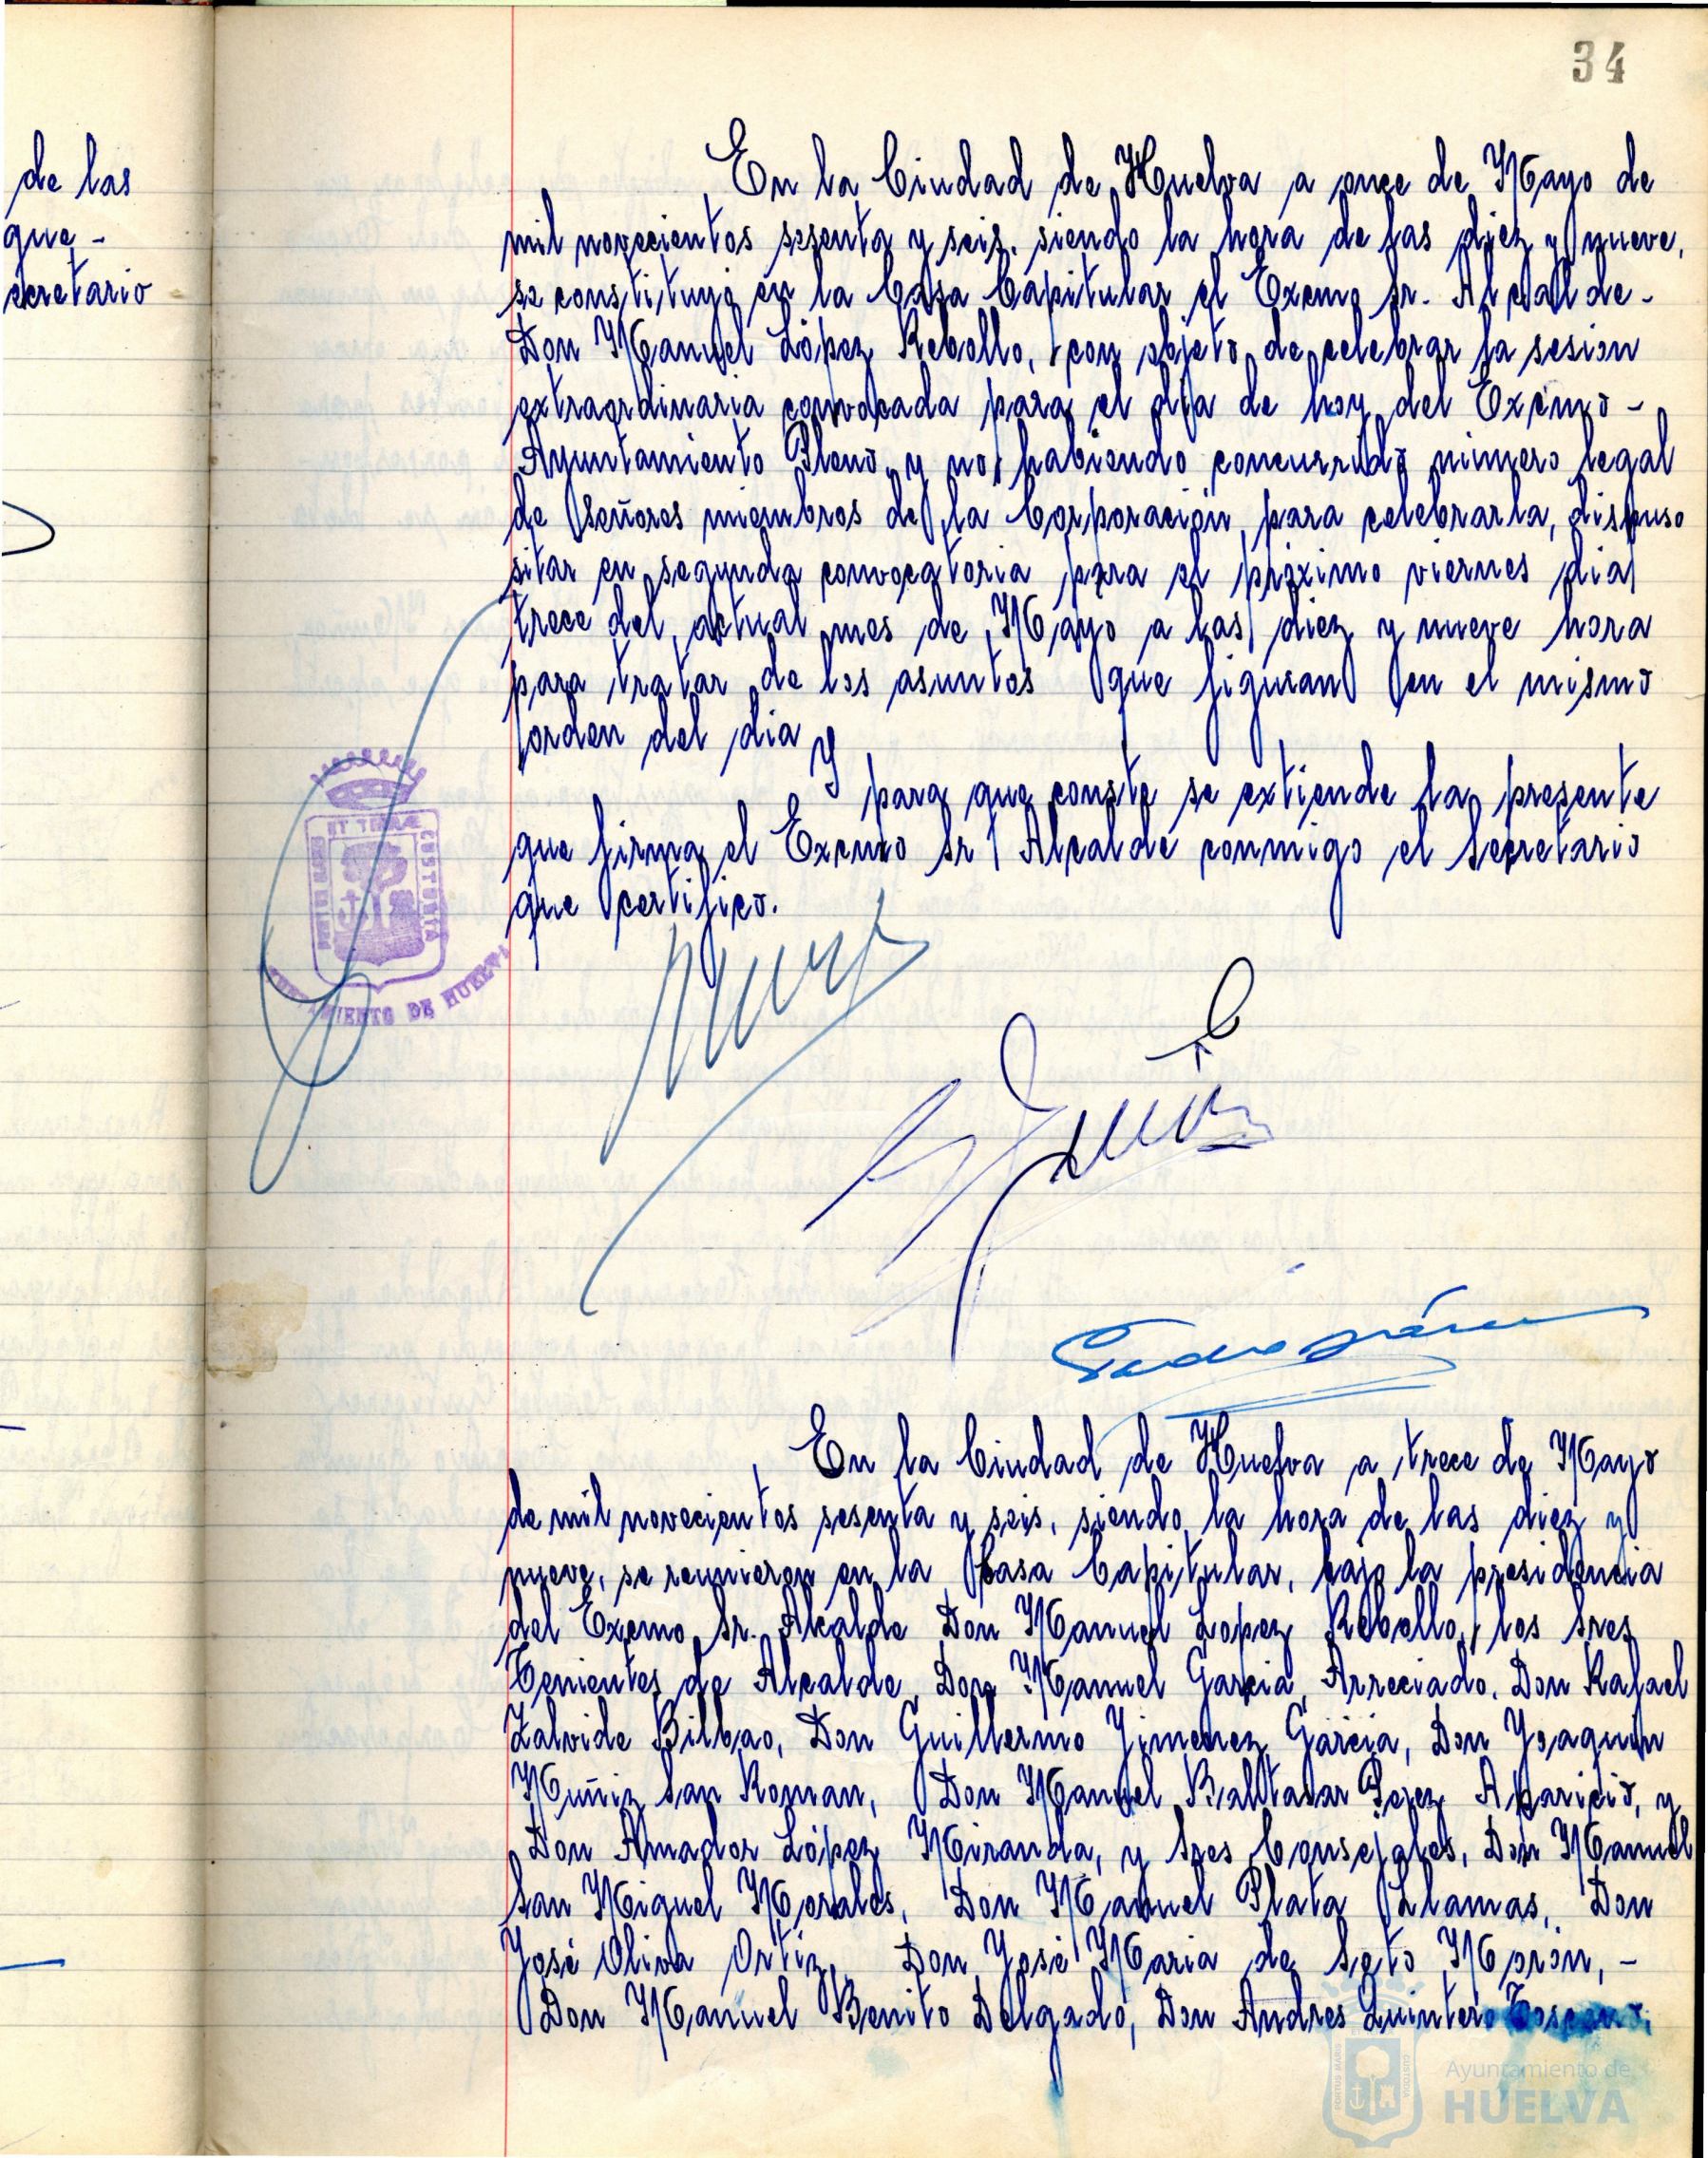 34
de las
que -
ecretario
En la Ciudad de Huelva a once de Mayo de
mil novecientos sesenta y seis. siendo la hora de las diez y nueve,
se constituyó en la Casa Capitular el Excmo Sr. Alcalde -
Don Manuel López Rebollo, con objeto de celebrar la sesion
extraordinaria convocada para el día de hoy del Excmo -
Ayuntamiento Pleno y no habiendo concurrido número legal
de señores miembros de la Corporación, para celebrarla, dispuso
sitar en segunda convocatoria para el próximo viernes dia
trece del actual mes de Mayo a las diez y nueve hora
para tratar de los asuntos que figuran en el mismo
orden del dia
Y para que conste se extiende la presente
que firma el Excmo Sr Alcalde conmigo el Secretario
que certifico.
PORTUS MARIS ET TERRAE CUSTODIA
AYUNTAMIENTO DE HUELVA
En la Ciudad de Huelva a trece de Mayo
de mil novecientos sesenta y seis, siendo la hora de las diez y
nueve, se reunieron en la Casa Capitular, bajo la presidencia
del Excmo Sr. Alcalde Don Manuel Lopez Rebollo, los Sres
Tenientes de Alcalde Don Manuel Garcia Arreciado, Don Rafael
Zalvide Bilbao, Don Guillermo Jimenez Garcia, Don Joaquin
Muñiz San Roman, Don Manuel Baltasar Perez Aparicio, y
Don Amador López Miranda, y Sres Consejales, Don Manuel
San Miguel Morales, Don Manuel Plata Llamas, Don
José Oliva Ortiz, Don José Maria de Soto Morón, -
Don Manuel Benito Delgado, Don Andres Quintero Toscano,
PORTUS MARIS CUSTODIA
Ayuntamiento de
HUELVA